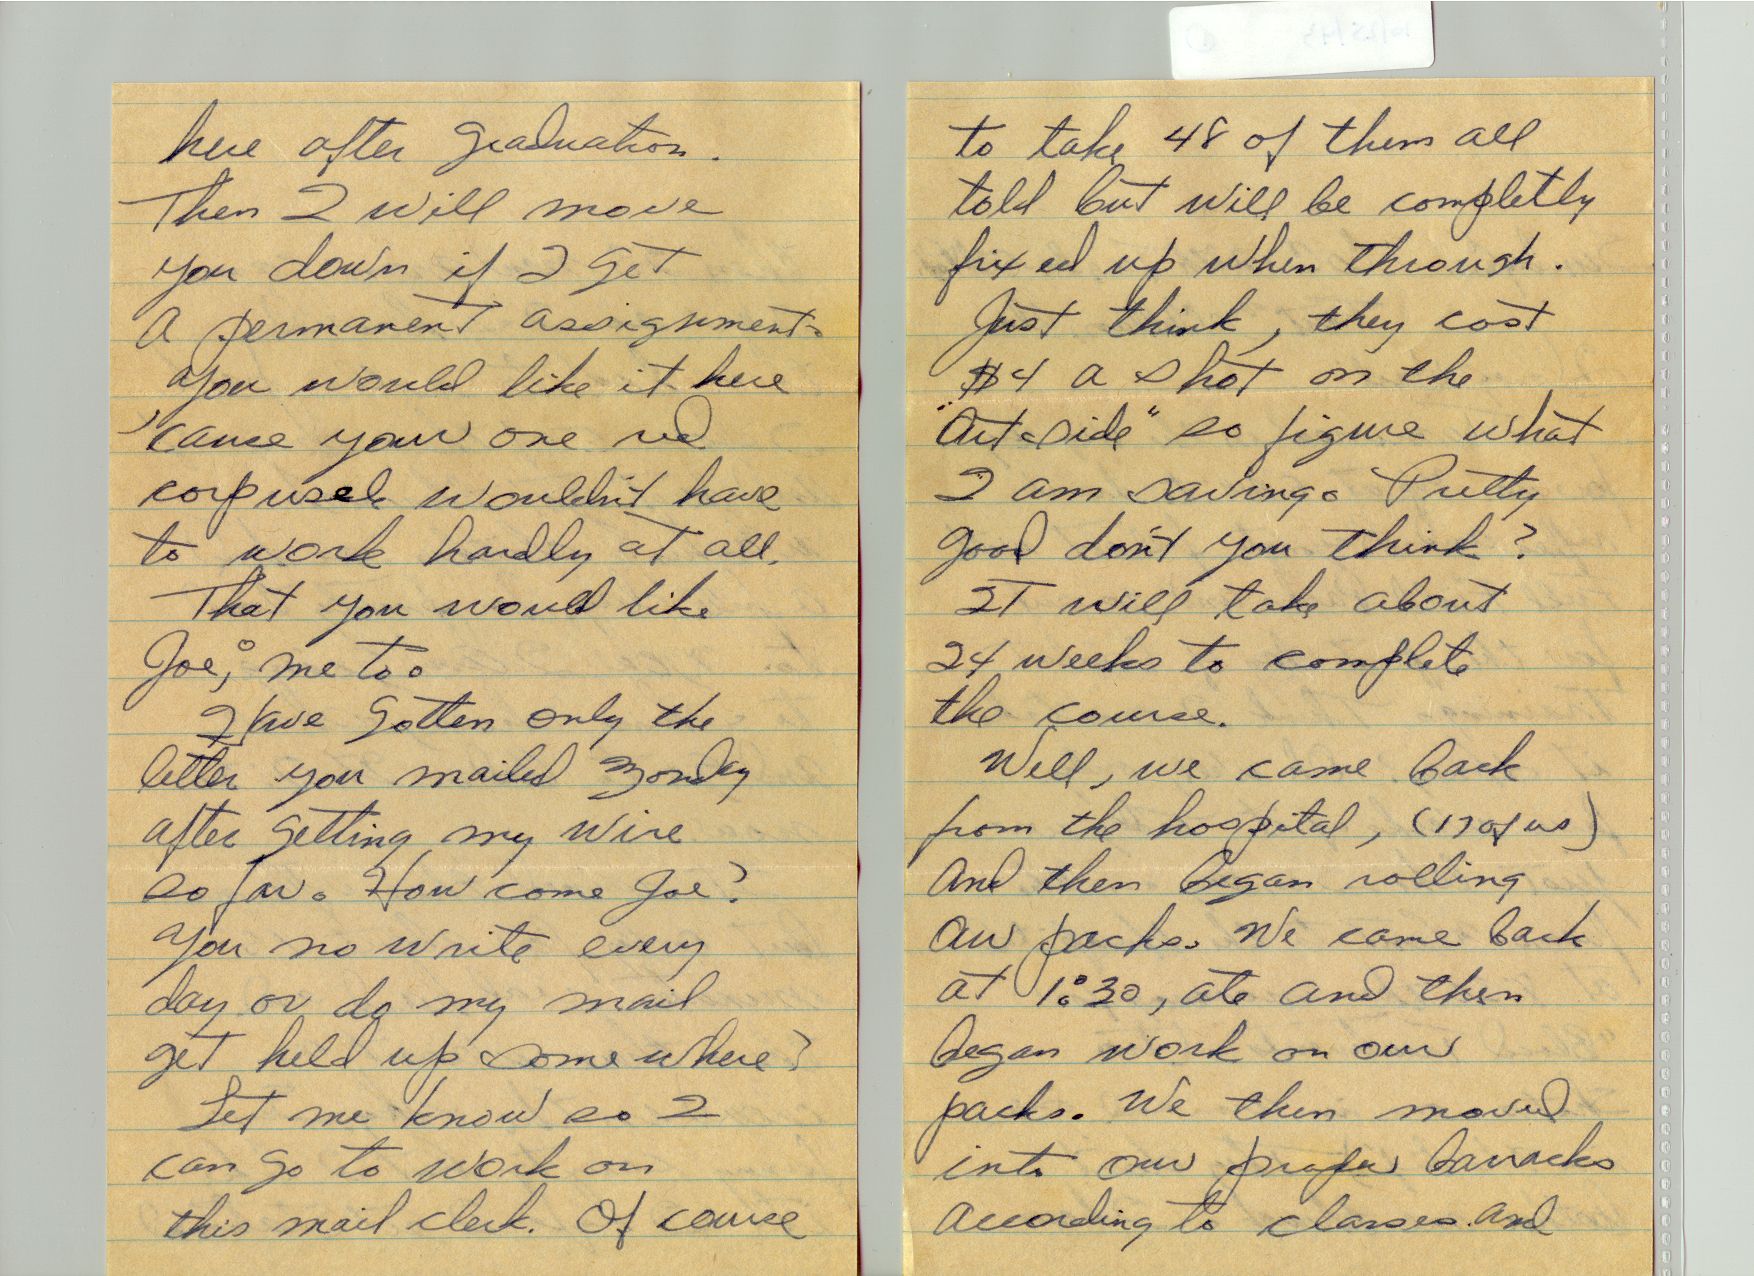 here after graduation.
Then I will move
you down if I get
a permanent assignment.
You would like it here
'cause your one red
corpusele wouldn't have
to work hardly at all.
That you would like
Joe; me too
I have gotten only the
letter you mailed Monday
after getting my wire
so far. How come Joe?
You no write every
day or do my mail
get held up somewhere?
Let me know so I
can go to work on
this mail clerk. Of course
to take 48 of them all
told but will be completly
fixed up when through.
Just think, they cost
$4 a shot on the
"out-side" so figure what
I am saving. Pretty
good don't you think?
It will take about
24 weeks to complete
the course.
Well, we came back
from the hospital, (17 of us)
and then began rolling
our packs. We came back
at 1:30, ate and then
began work on our
packs. We then moved
into our proper barracks
according to classes and